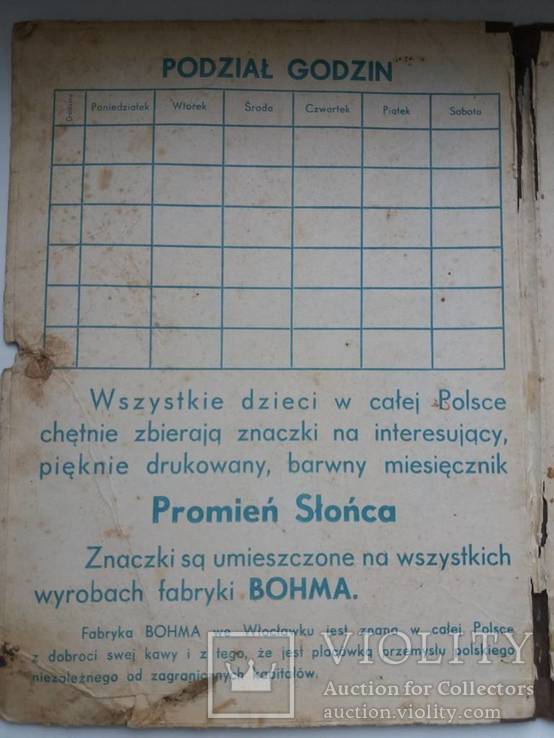 PODZIAŁ GODZIN
Godzina Poniedziałek Wtorek Środa Czwartek Piątek Sobota
Wszystkie dzieci w całej Polsce
chętnie zbierają znaczki na interesujący,
pięknie drukowany, barwny miesięcznik
Promień Słońca
Znaczki są umieszczone na wszystkich
wyrobach fabryki BOHMA.
Fabryka BOHMA we Włocławku jest znana w całej Polsce
z dobroci swej kawy i z tego, że jest placówką przemysłu polskiego
niezależnego od zagranicznych kapitałów.
VIOLITY
Auction for Collectors
auction.violity.com